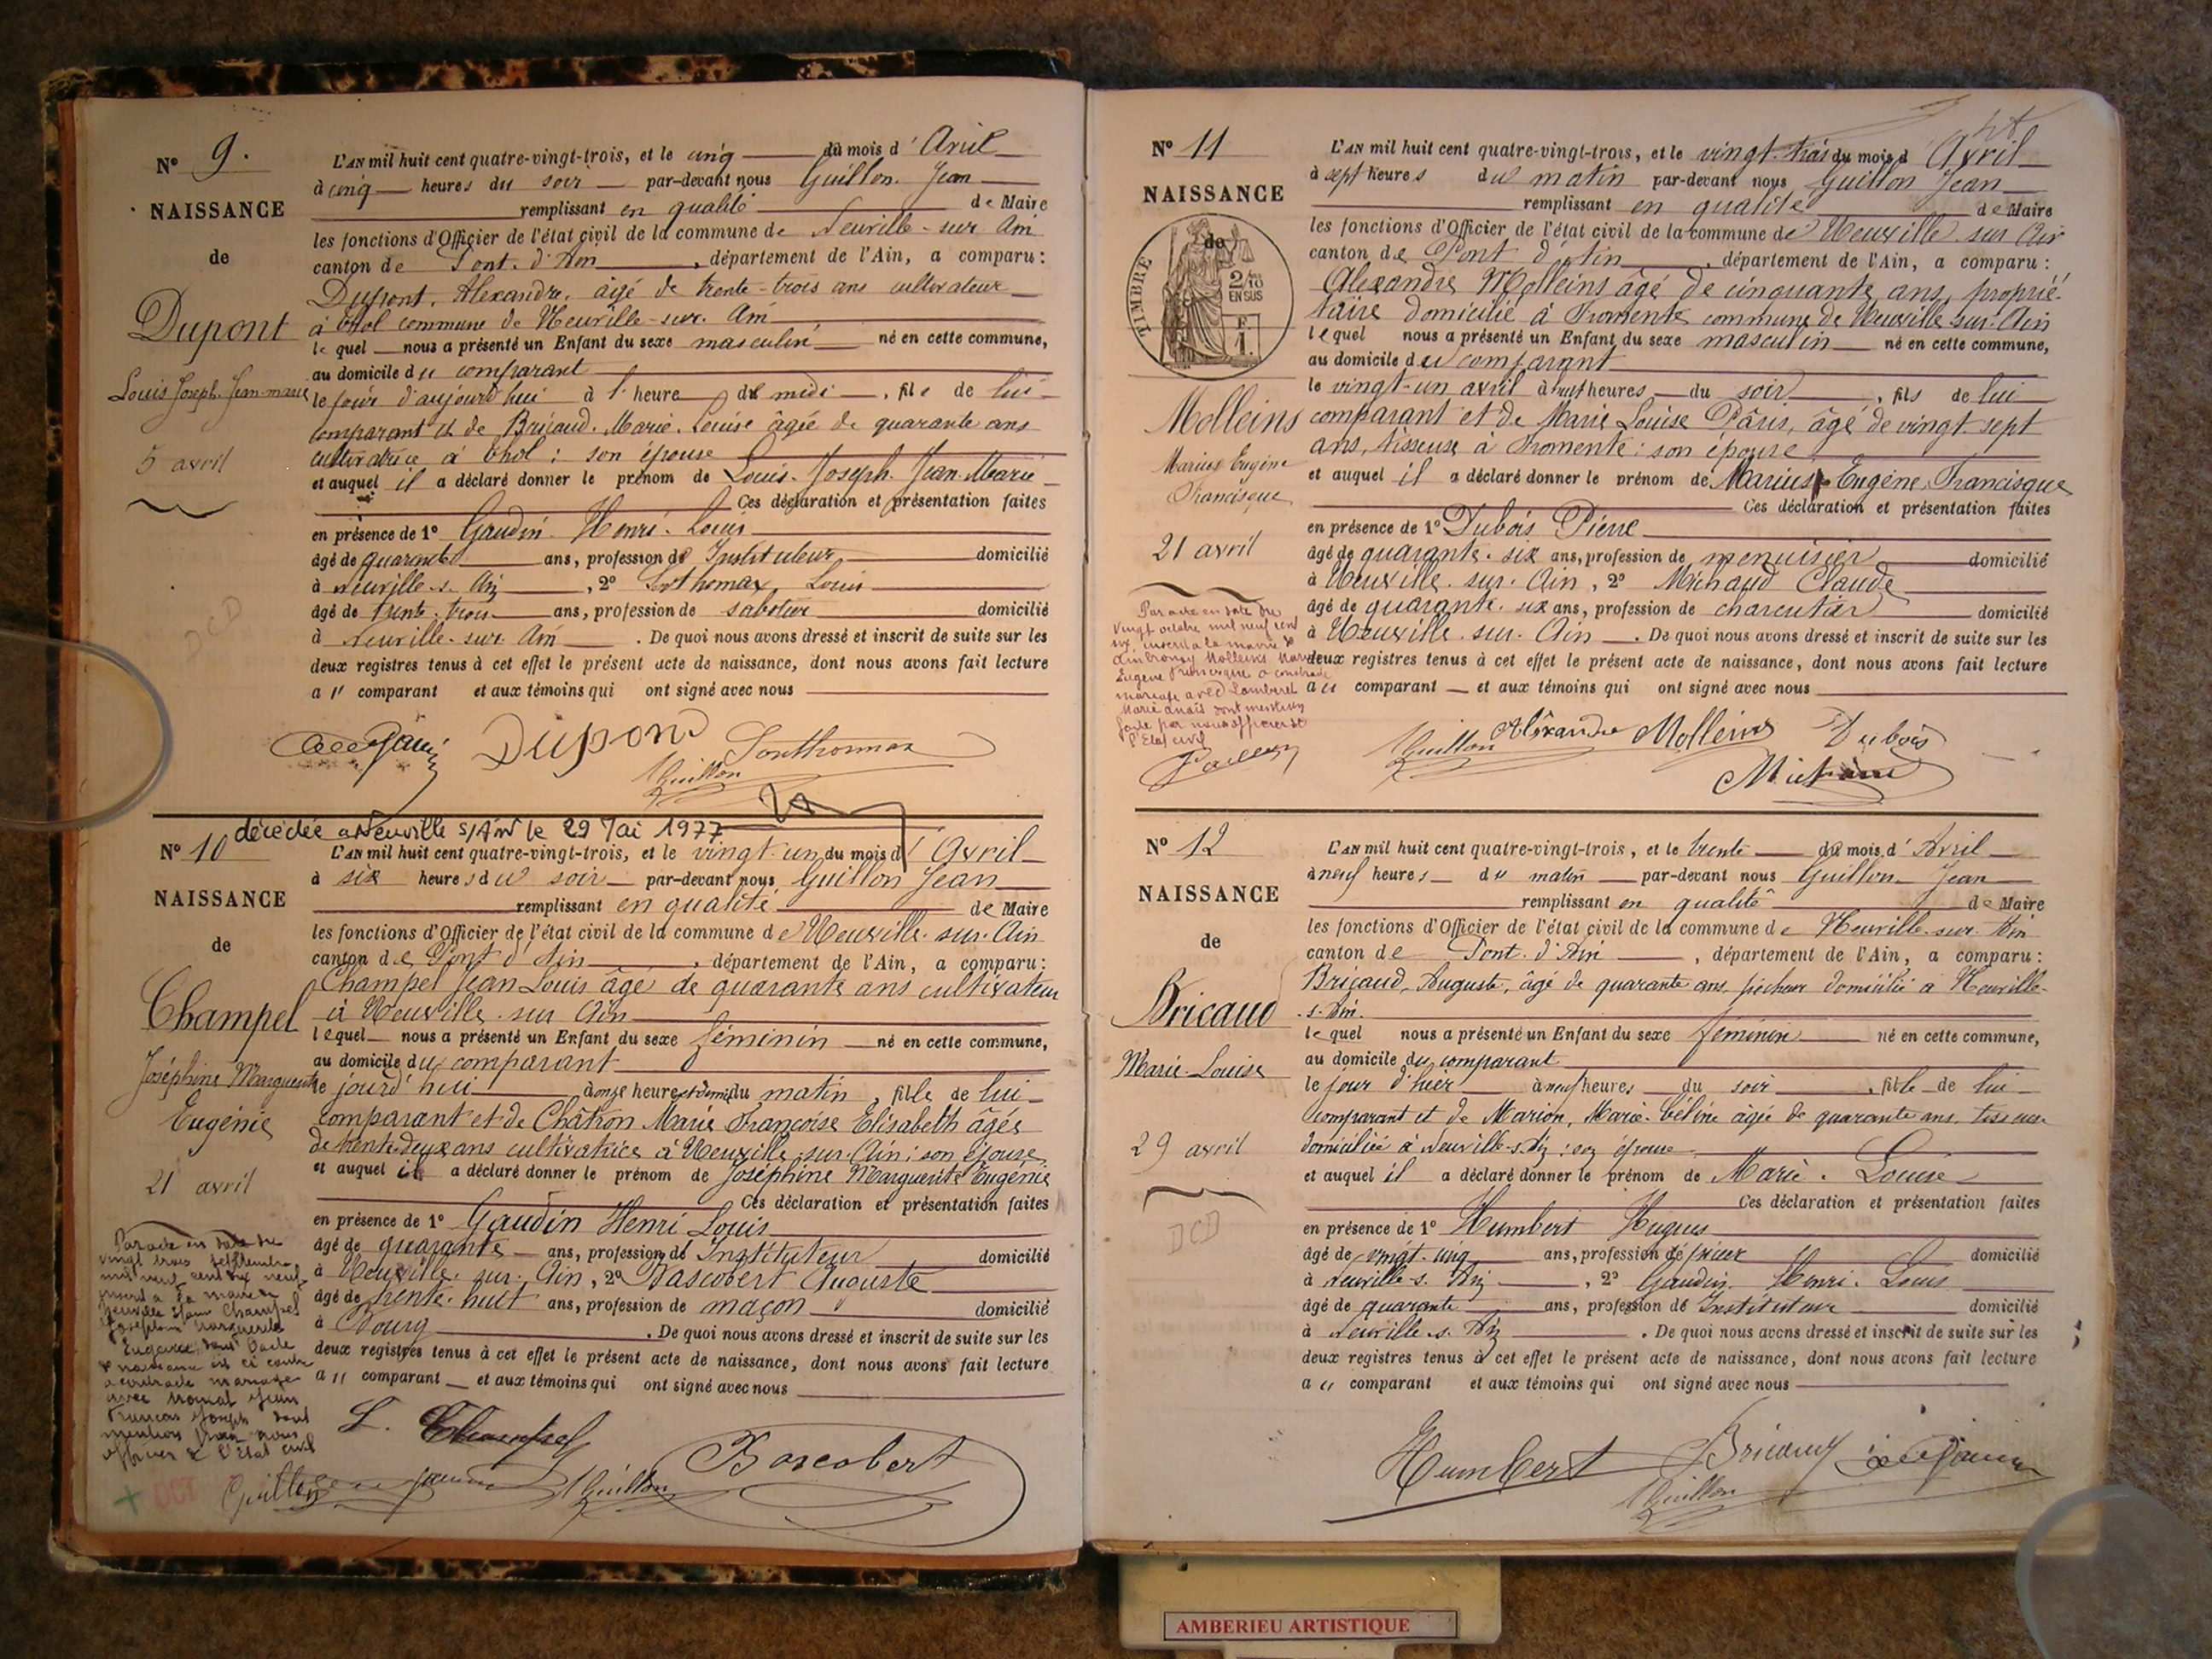 N° 9.
NAISSANCE
de
Dupont
Louis Joseph Jean-marie
5 avril
DCD
L'AN mil huit cent quatre-vingt-trois, et le cinq du mois d'Avril
à cinq heures du soir par-devant nous Guillon Jean
remplissant en qualité de Maire
les fonctions d'Officier de l'état civil de la commune de Neuville-sur-Ain
canton de Pont-d'Ain, département de l'Ain, a comparu:
Dupont, Alexandre, âgé de trente-trois ans cultivateur
à Thol commune de Neuville-sur-Ain
lequel nous a présenté un Enfant du sexe masculin né en cette commune,
au domicile du comparant
le jour d'aujourd'hui à 1 heure du midi, fils de lui
comparant et de Bricaud, Marie, Louise âgée de quarante ans
cultivatrice à Thol; son épouse
et auquel il a déclaré donner le prénom de Louis-Joseph-Jean-Marie
Ces déclaration et présentation faites
en présence de 1° Gaudin Henri-Louis
âgé de quarante ans, profession de Instituteur domicilié
à Neuville-s.-Ain, 2° Sonthonnax, Louis
âgé de trente-trois ans, profession de sabotier domicilié
à Neuville-sur-Ain. De quoi nous avons dressé et inscrit de suite sur les
deux registres tenus à cet effet le présent acte de naissance, dont nous avons fait lecture
au comparant et aux témoins qui ont signé avec nous
Dupont Sonthonnax
Guillon
décédée à Neuville s/Ain le 29 Mai 1977
N° 10
NAISSANCE
de
Champel
Joséphine Marguerite
Eugénie
21 avril
Par acte en date du
vingt trois septembre
mil neuf cent dix neuf
inscrit à la mairie de
Neuville s/Ain Champel
Joséphine Marguerite
Eugénie, dont l'acte
de naissance est ci contre
a contracté mariage
avec Jean
François Joseph dont
mention par nous
officier de l'état civil
L'AN mil huit cent quatre-vingt-trois, et le vingt-un du mois d'Avril
à six heures du soir par-devant nous, Guillon Jean
remplissant en qualité de Maire
les fonctions d'Officier de l'état civil de la commune de Neuville-sur-Ain
canton de Pont d'Ain, département de l'Ain, a comparu:
Champel Jean Louis âgé de quarante ans cultivateur
à Neuville-sur-Ain
lequel nous a présenté un Enfant du sexe féminin né en cette commune,
au domicile du comparant
le jourd'hui à onze heures et demi du matin, fille de lui
comparant et de Châtron Marie Françoise Elisabeth âgée
de trente-deux ans cultivatrice à Neuville-sur-Ain; son épouse
et auquel il a déclaré donner le prénom de Joséphine Marguerite Eugénie
Ces déclaration et présentation faites
en présence de 1° Gaudin Henri Louis
âgé de quarante ans, profession de Instituteur domicilié
à Neuville-sur-Ain, 2° Bascobert Auguste
âgé de trente-huit ans, profession de maçon domicilié
à Bourg. De quoi nous avons dressé et inscrit de suite sur les
deux registres tenus à cet effet le présent acte de naissance, dont nous avons fait lecture
au comparant et aux témoins qui ont signé avec nous
L. Champel
Bascobert
Guillon
N° 11
NAISSANCE
de
TIMBRE
2/10
EN SUS
F.
1.
Molleins
Marius Eugène
Francisque
21 avril
Par acte en date du
vingt octobre mil neuf cent
six, inscrit à la mairie de
Ambronay Molleins Marius
Eugène Francisque a contracté
mariage avec Lamberet
Marie Anaïs dont mention
faite par nous officier de
l'Etat civil
L'AN mil huit cent quatre-vingt-trois, et le vingt-trois du mois d'Avril
à sept heures du matin par-devant nous Guillon Jean
remplissant en qualité de Maire
les fonctions d'Officier de l'état civil de la commune de Neuville-sur-Ain
canton de Pont d'Ain, département de l'Ain, a comparu:
Alexandre Molleins âgé de cinquante ans, proprié-
taire domicilié à Fromente commune de Neuville-sur-Ain
lequel nous a présenté un Enfant du sexe masculin né en cette commune,
au domicile du comparant
le vingt-un avril à huit heures du soir, fils de lui
comparant et de Marie Louise Pâris, âgé de vingt-sept
ans, tisseuse à Fromente; son épouse
et auquel il a déclaré donner le prénom de Marius Eugène Francisque
Ces déclaration et présentation faites
en présence de 1° Dubois Pierre
âgé de quarante-six ans, profession de menuisier domicilié
à Neuville-sur-Ain, 2° Michaud Claude
âgé de quarante-six ans, profession de charcutier domicilié
à Neuville-sur-Ain. De quoi nous avons dressé et inscrit de suite sur les
deux registres tenus à cet effet le présent acte de naissance, dont nous avons fait lecture
au comparant et aux témoins qui ont signé avec nous
Guillon Alexandre Molleins Dubois
Michaud
N° 12
NAISSANCE
de
Bricaud
Marie-Louise
29 avril
DCD
L'AN mil huit cent quatre-vingt-trois, et le trente du mois d'Avril
à neuf heures du matin par-devant nous Guillon Jean
remplissant en qualité de Maire
les fonctions d'Officier de l'état civil de la commune de Neuville-sur-Ain
canton de Pont-d'Ain, département de l'Ain, a comparu:
Bricaud, Auguste, âgé de quarante ans pêcheur domicilié à Neuville-
-s.-Ain.
lequel nous a présenté un Enfant du sexe féminin né en cette commune,
au domicile du comparant
le jour d'hier à neuf heures du soir, fille de lui
comparant et de Marion, Marie-Céline âgée de quarante ans, tisseuse
domiciliée à Neuville-s.-Ain; son épouse
et auquel il a déclaré donner le prénom de Marie-Louise
Ces déclaration et présentation faites
en présence de 1° Humbert Hugues
âgé de vingt-cinq ans, profession de domicilié
à Neuville-s.-Ain, 2° Gaudin Henri-Louis
âgé de quarante ans, profession de Instituteur domicilié
à Neuville-s.-Ain. De quoi nous avons dressé et inscrit de suite sur les
deux registres tenus à cet effet le présent acte de naissance, dont nous avons fait lecture
au comparant et aux témoins qui ont signé avec nous
Humbert Bricaud
Guillon
AMBERIEU ARTISTIQUE